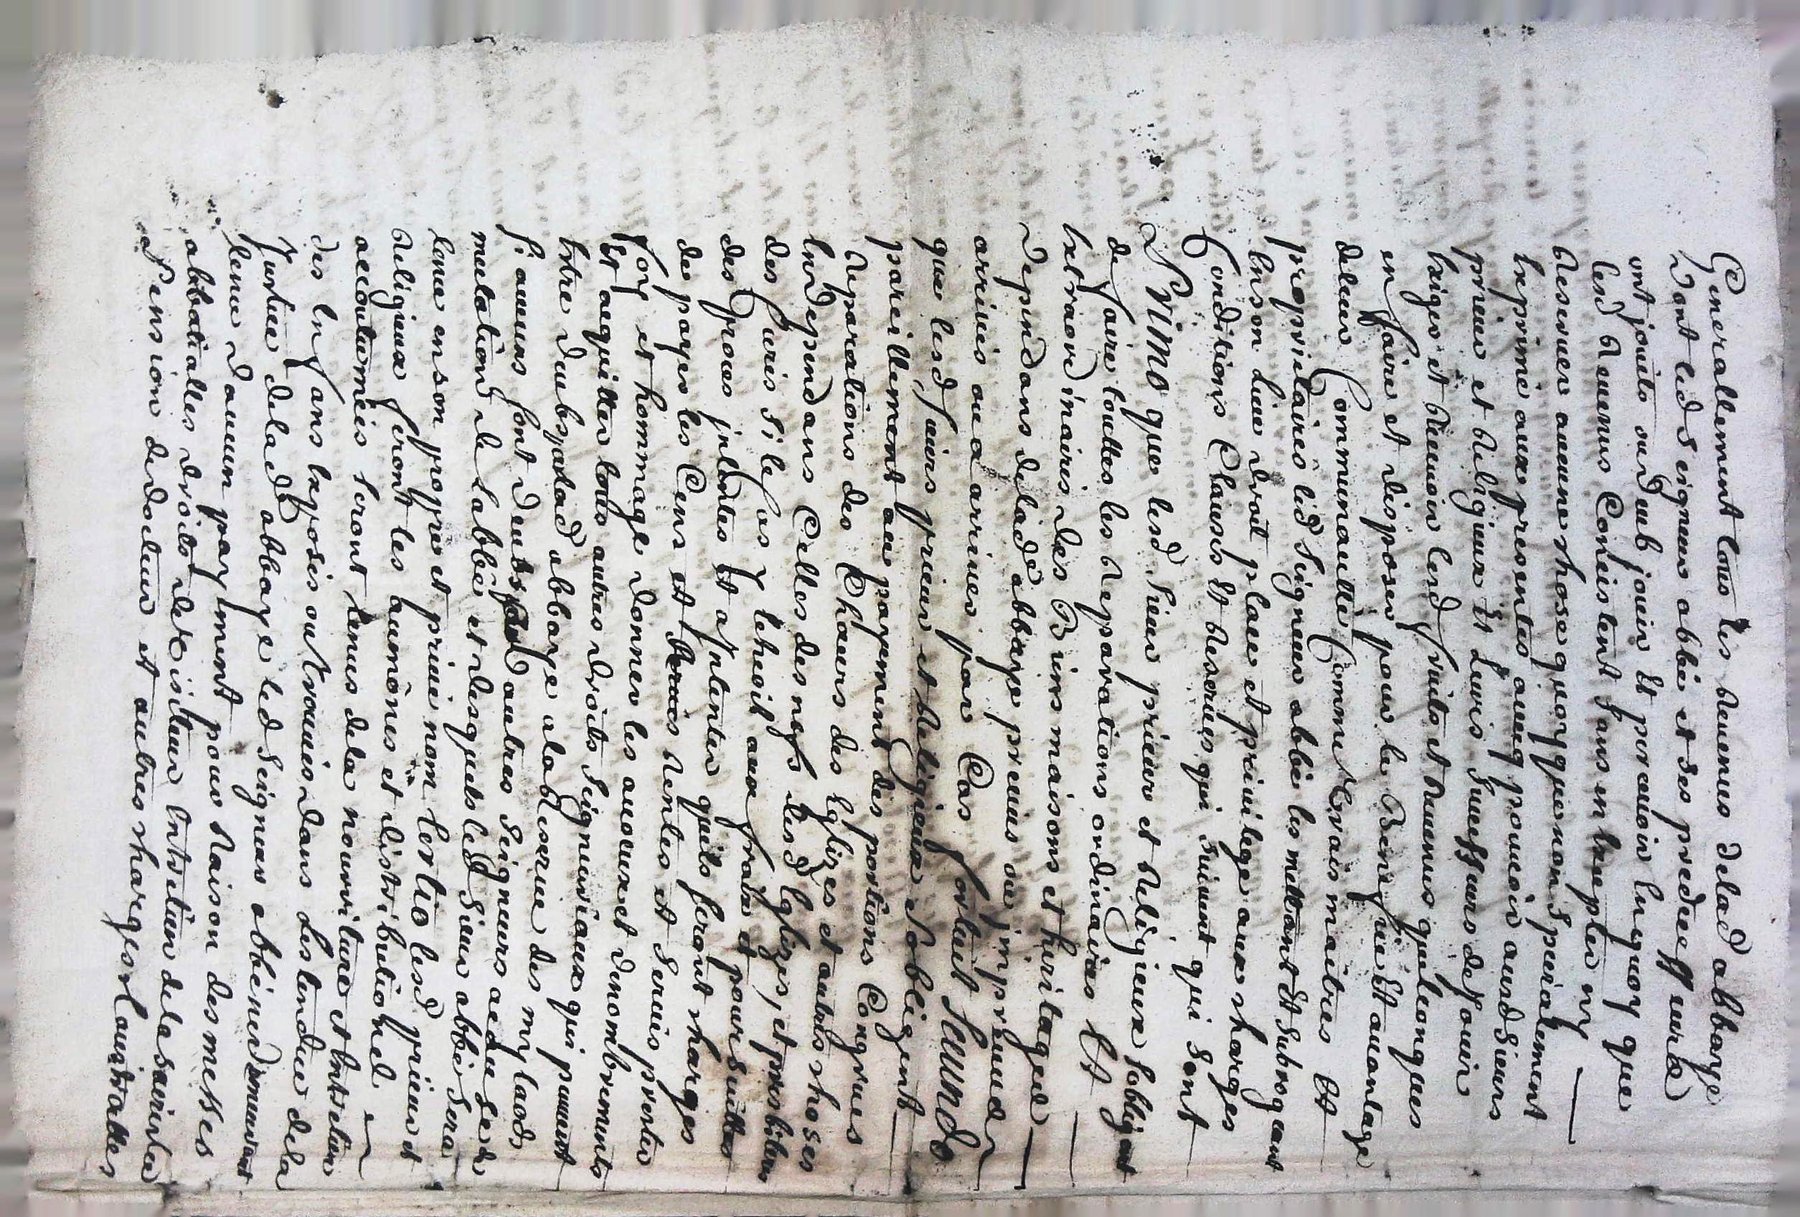 Generallement tous les revenus delad abbaye
Dont led seigneur abbé et ses predecesseurs
ont jouits ou dub jouir et percevoir en quoy que
lesd revenus Consistent sans en excepter ny
Reserver aucune chose quoyque non specialement
exprimé aux presentes avecq pouvoir ausd sieurs
prieur et religieux et leurs successeurs de jouir
exiger et recevoir lesd fruits et revenus quelconques
en faire et disposer pour le Benefice et avantage
de leur Communautté Comme vrais maitres et
proprietaires led seigneur abbé les mettant et subrogeant
en son lieu droit place et privilege aux charges
Conditions Clauses et reserves qui suivent qui sont
Primo que lesd sieur prieur et religieux sobligent
de faire touttes les reparations ordinaires et
extraordinaires des Biens maisons et heritages
dependans delade abbaye preuus ou inpreuus
arrivés ou a arriver par Cas fortuit Secundo
que lesd sieurs prieur et religieux sobligent
pareillement au payement des portions Congrues
reparations des Chœurs des eglizes et autres choses
independans Celles des nefs desd eglizes, et presbiteres
des Curés si le Cas y echeoit aux fraix et poursuittes
des proces intentés et a intenter quils feront charges
de payer les Cens et rentes et services prester
foy et hommage donner les aveux et denombrements
et acquitter tous autres droits seigneuriaux qui peuvent
Estre deubs par lad abbaye a la Reserve des mylaods
si aucuns sont deubs par lad autres seigneurs acause de la
mutation de labbé et desquels led sieur abbé sera
tenu en son propre et privé nom tertio lesd prieur et
religieux feront les aumônes et distributions
accoutumées seront tenus de la nourriture et entretien
des enfans exposés ou trouvés dans lestendue dela
Justice delad abbaye led seigneur abbé ne demeurant
tenu daucun payement pour raison des messes
abbatialles droits de visiteur entretien dela sacristie
pension de docteur et autres charges claustralles